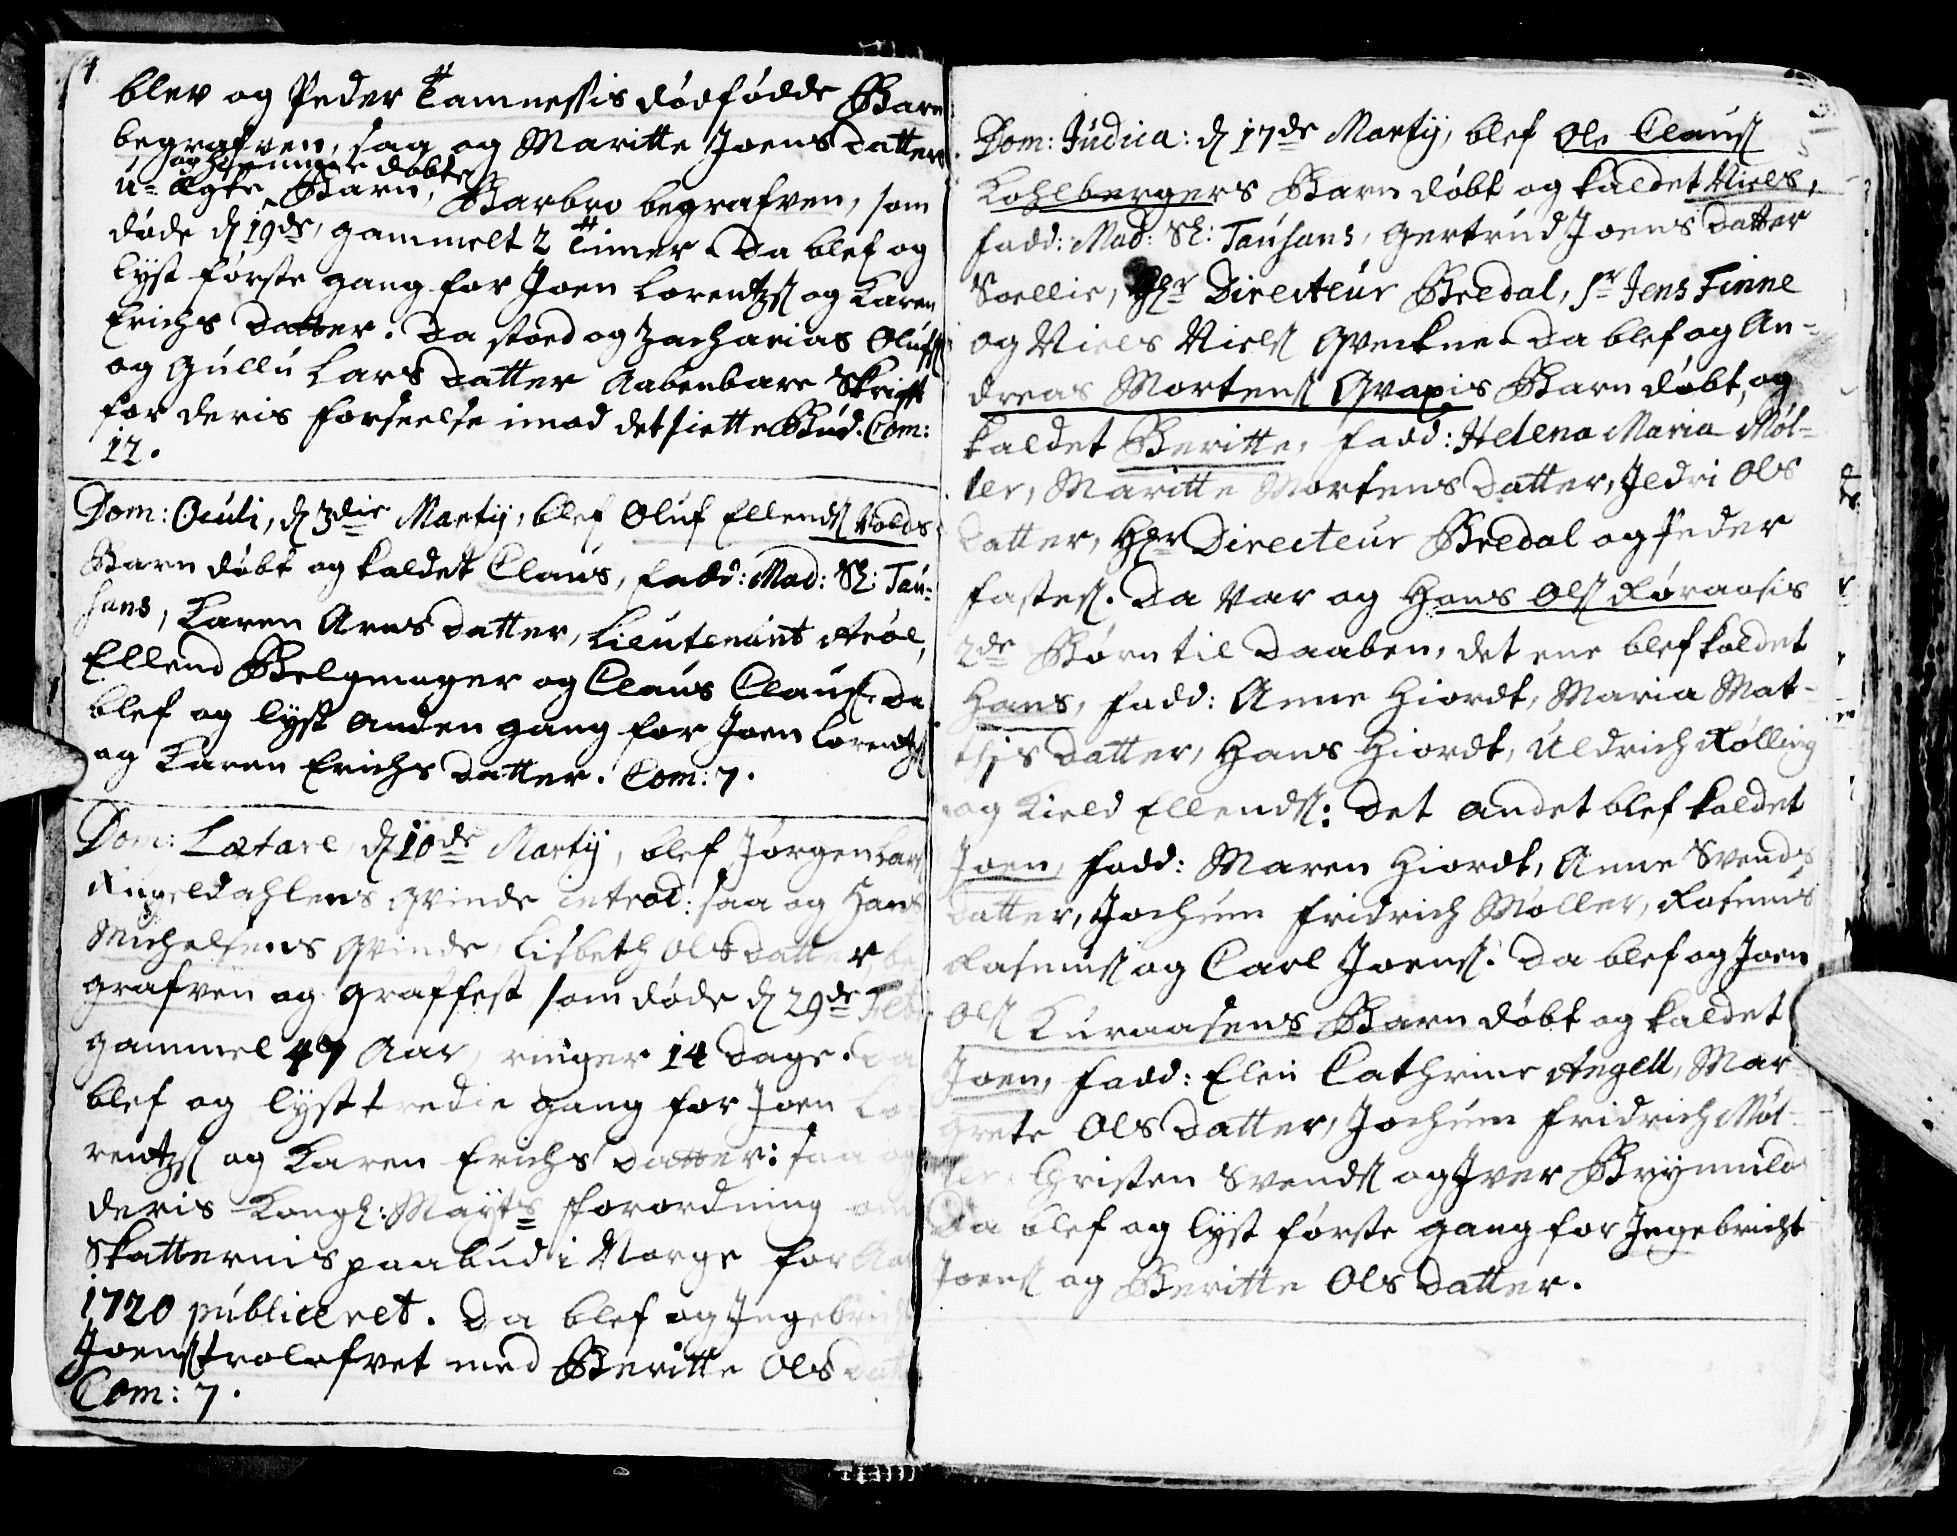 4.
blev og Peder Tamnessis dødfødde Barn
begrafven, saa og Maritte Joens Datters
og hiemme døbte
u-ægte Barn, Barbro begrafven, som
døde d 19de, gammelt 2 Timer. Da blef og
lyst første gang for Joen Lorentzs og Karen
Erichs Datter. Da stoed og Zacharias Olufs
og Gullu Lars Datter Aabenbare Skrifft
for deris forseelse imod det siette Bud. Com:
12.
Dom: Oculi, d 3die Martij, blef Oluf Ellends Volds
Barn døbt og kaldet Claus, fadd: Mad: Sl: Tau-
sans, Karen Arns Datter, Lieutenant
Ellend Belgmager og Claus Claus. Da
blef og lyst anden gang for Joen Lorentzs
og Karen Erichs Datter. Com: 7.
Dom: Lætare, d 10de Martij, blef Jørgen Lars
Ringeldahlens Qvinde introd: saa og Hans
Michelsens Qvinde, Lisbeth Ols Datter be
grafven og graffest som døde d 29de Feb
gammel 47 Aar, ringer 14 Dage. Da
blef og lyst tredie gang for Joen Lo-
rentzs og Karen Erichs Datter: saa og
deris Kongl: Mayts Forordning om
Skatternis paabud i Norge for Aar
1720 publiceret. Da blef og Ingebricht
Joens trolofvet med Beritte Ols Datt
Com: 7.
5
Dom: Judica: d 17de Martij, blef Ole Claus
Kohlbergers Barn døbt og kaldet Niels,
fadd: Mad: Sl: Tausans, Gertrud Joens Datter
Soellie, Hr Directeur Bredal, Sr Jens Finne
og Niels Niels Qveckne. Da blef og An-
dreas Mortens Qvaxis Barn døbt, og
kaldet Beritte, fadd: Helena Maria Møl-
ler, Maritte Mortens Datter, Jedri Ols
Datter, Hr Directeur Bredal og Peder
fastes. Da var og Hans Ols Røraasis
2de Børn til Daaben, det ene blef kaldet
Hans, fadd: Anne Hiordt, Maria Mat-
this Datter, Hans Hiordt, Uldrich Rølling
og Kield Ellends: Det andet blef kaldet
Joen, fadd: Maren Hiordt, Anne Svends
Datter, Jochum Fridrich Møller, Rasmus
Rasmus og Carl Joens. Da blef og Joen
Ols Kuraasens Barn døbt og kaldet
Joen, fadd: Elen Cathrine Angell, Mar-
grete Ols Datter, Jochum Fridrich Møl-
ler, Christen Svends og Iver Brynnild
Da blef og lyst første gang for Ingebricht
Joens og Beritte Ols Datter.